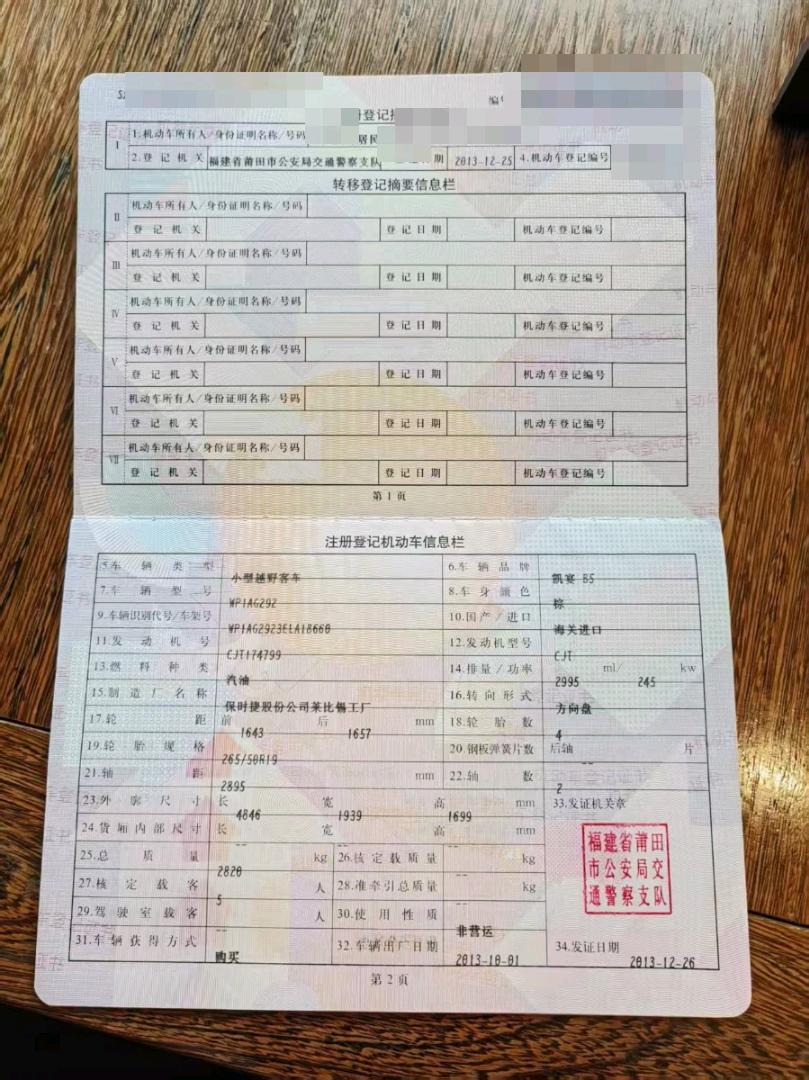 编
册登记摘
I 1.机动车所有人/身份证明名称/号码 居民
2.登记机关 福建省莆田市公安局交通警察支队 期 2013-12-25 4.机动车登记编号
转移登记摘要信息栏
II 机动车所有人/身份证明名称/号码
登记机关 登记日期 机动车登记编号
III 机动车所有人/身份证明名称/号码
登记机关 登记日期 机动车登记编号
IV 机动车所有人/身份证明名称/号码
登记机关 登记日期 机动车登记编号
V 机动车所有人/身份证明名称/号码
登记机关 登记日期 机动车登记编号
VI 机动车所有人/身份证明名称/号码
登记机关 登记日期 机动车登记编号
VII 机动车所有人/身份证明名称/号码
登记机关 登记日期 机动车登记编号
第1页
注册登记机动车信息栏
5.车辆类型 小型越野客车 6.车辆品牌 凯宴 B5
7.车辆型号 WP1AG292 8.车身颜色 棕
9.车辆识别代号/车架号 WP1AG2923ELA18660 10.国产/进口 海关进口
11.发动机号 CJT174799 12.发动机型号 CJT
13.燃料种类 汽油 14.排量/功率 2995 ml/ 245 kw
15.制造厂名称 保时捷股份公司莱比锡工厂 16.转向形式 方向盘
17.轮距 前 1643 后 1657 mm 18.轮胎数 4
19.轮胎规格 265/50R19 20.钢板弹簧片数 后轴 -- 片
21.轴距 2895 mm 22.轴数 2
23.外廓尺寸 长 4846 宽 1939 高 1699 mm 33.发证机关章
24.货厢内部尺寸 长 -- 宽 -- 高 -- mm
25.总质量 2820 kg 26.核定载质量 -- kg
27.核定载客 5 人 28.准牵引总质量 -- kg
29.驾驶室载客 -- 人 30.使用性质 非营运
31.车辆获得方式 购买 32.车辆出厂日期 2013-10-01 34.发证日期 2013-12-26
福建省莆田
市公安局交
通警察支队
第2页